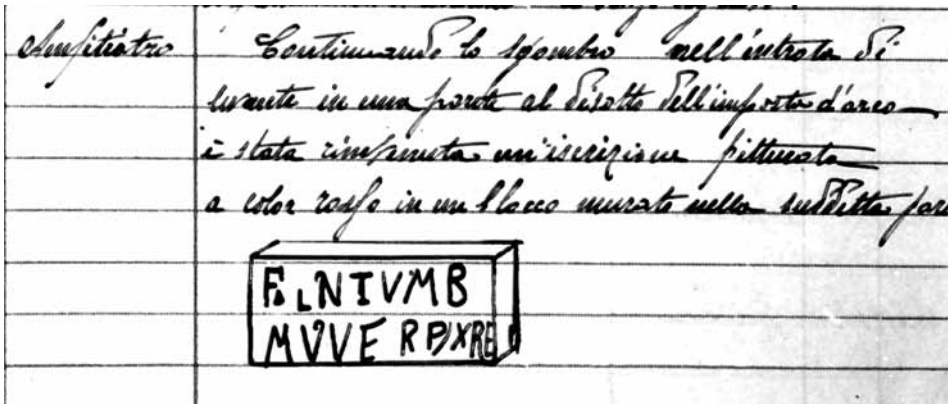 Anfiteatro Continuando lo sgombro nell'intrata di
levante in una parete al disotto dell'imposta d'arco
è stata rinvenuta un'iscrizione pitturata
a color rosso in un blocco murato nella suddetta par
LNTVMB
MVVE RP